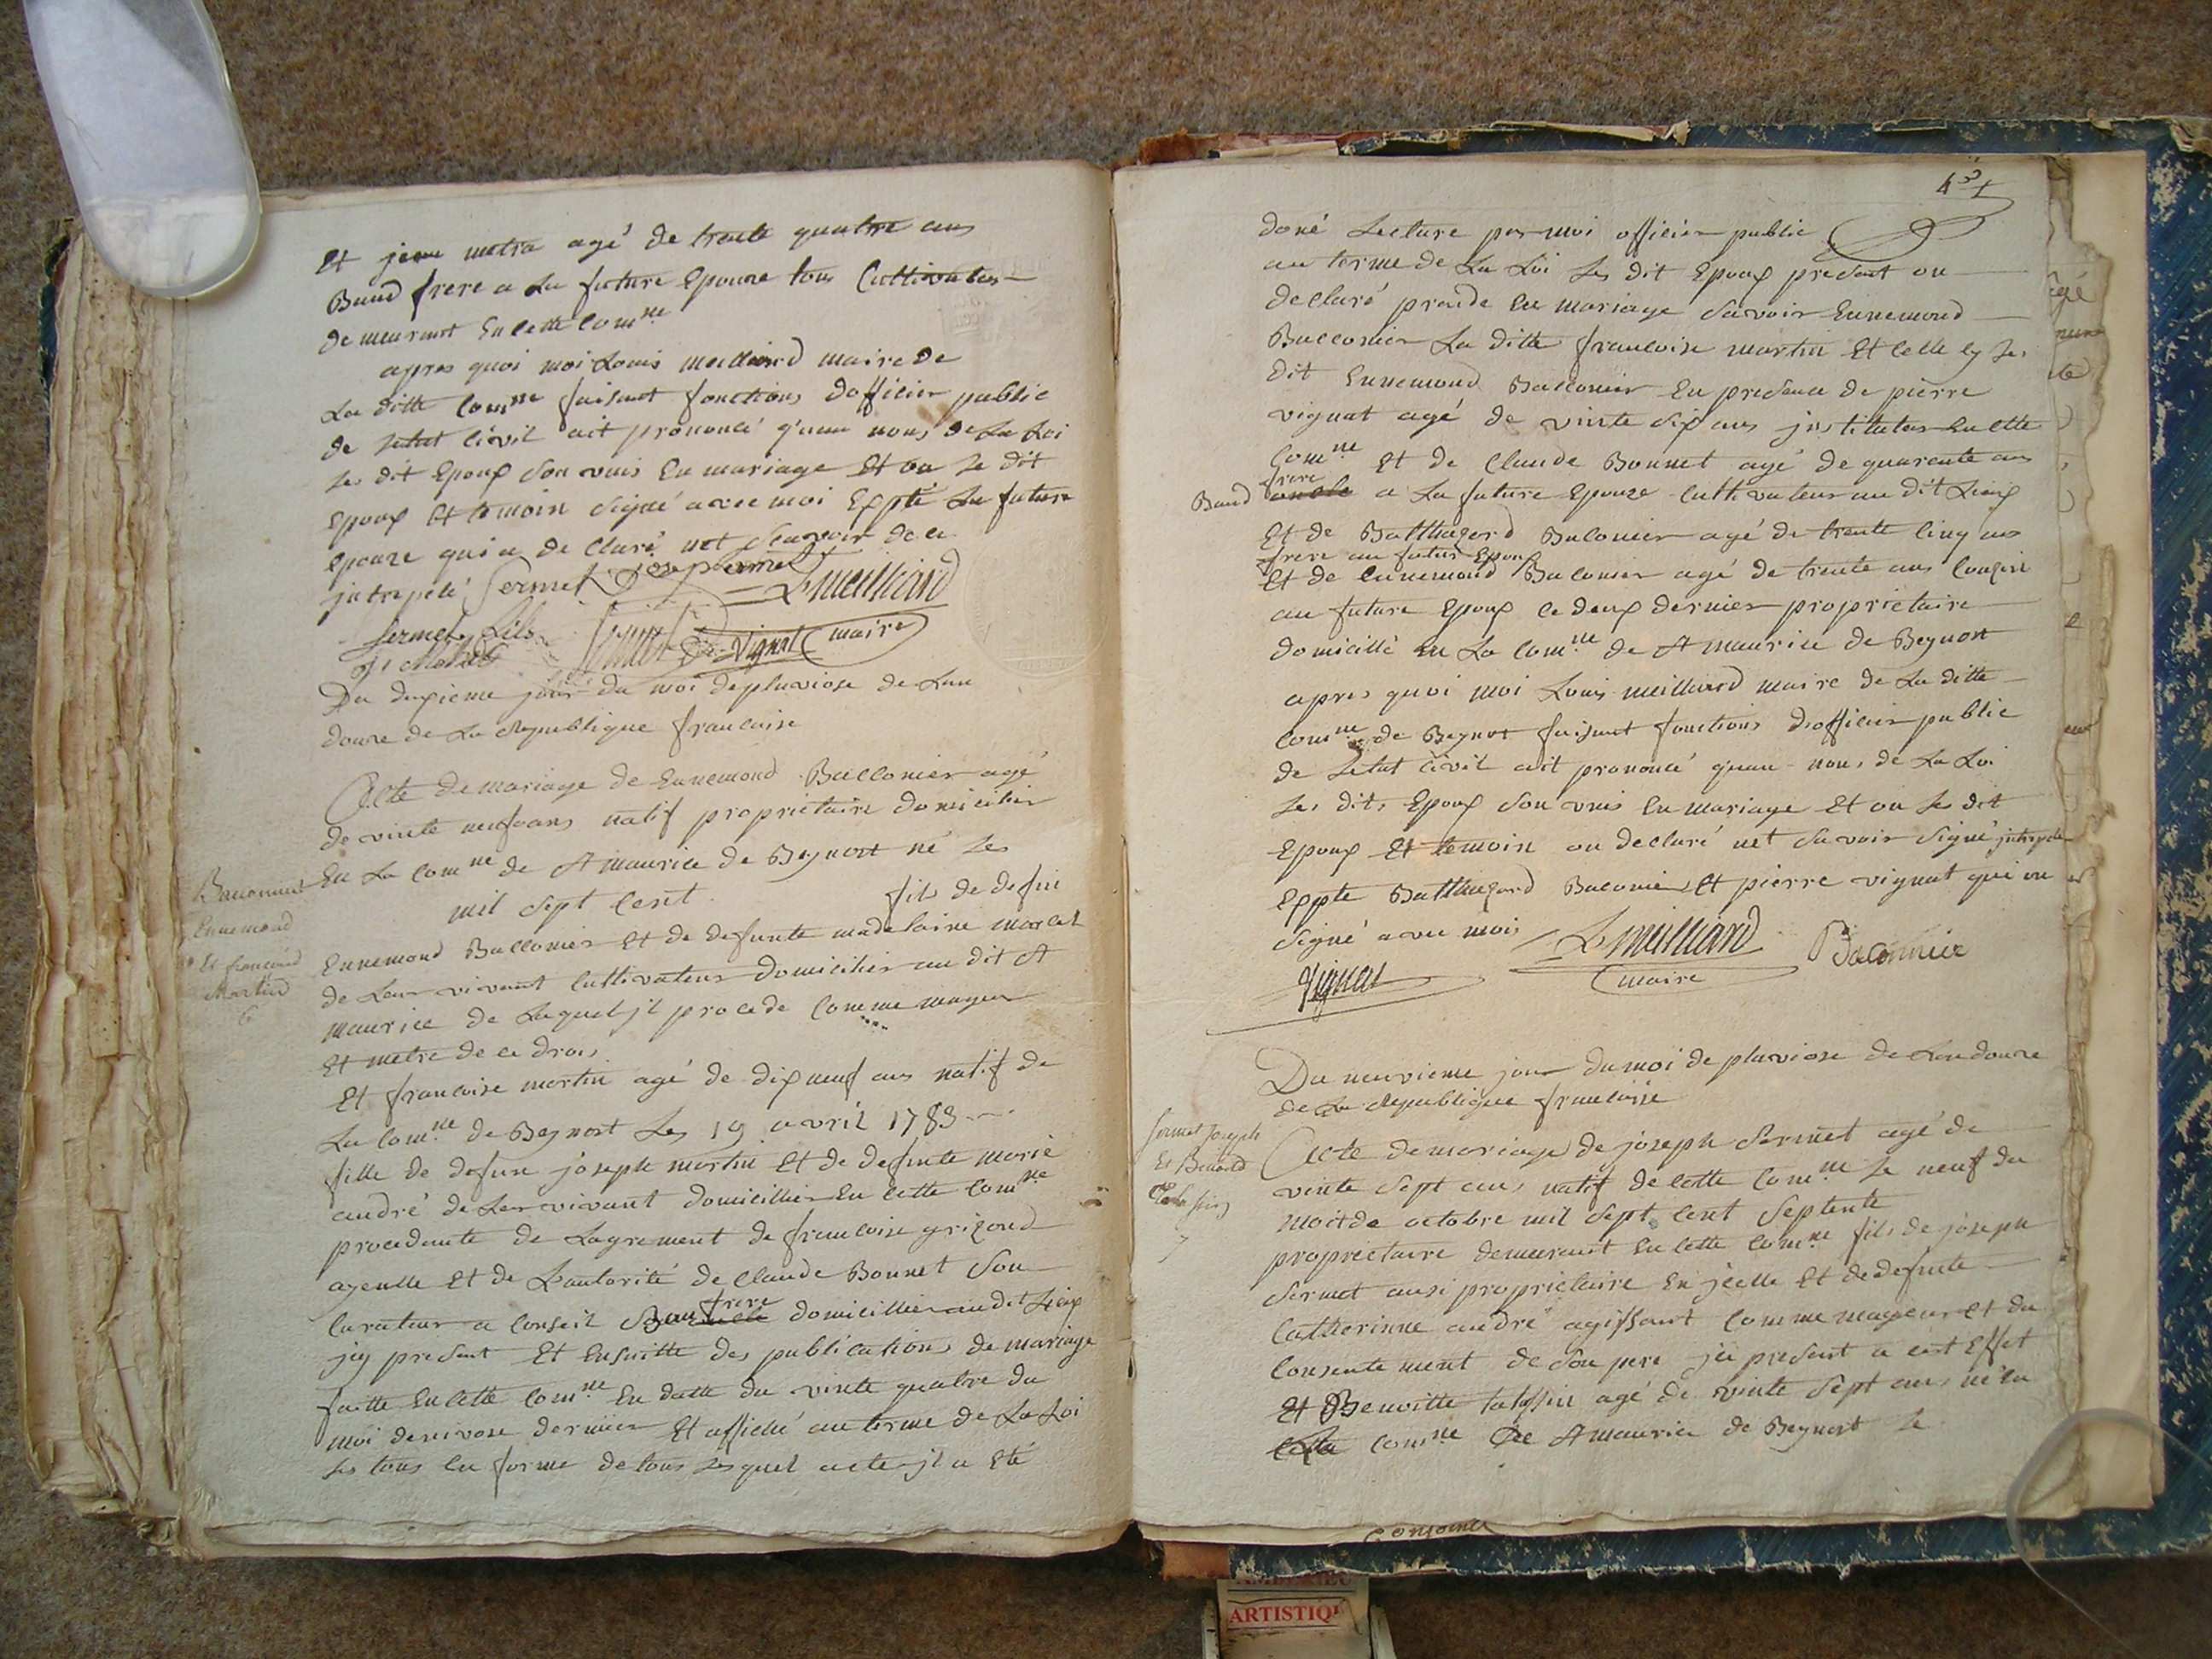 Et jean metra agé de trente quatre ans
Baud frere a La future Epouze tous Cultivateur
demeurant En cette Comne
apres quoi moi Louis meilliard maire de
La ditte Comne faisant fonctions dofficier public
de Letat Civil ait prononcé q'uau nous de La Loi
Les dit Epoux son unis En mariage Et on Le dit
Epoux Et temoin signé avec moi Expté La future
epouze qui a de Claré net scavoir de ce
jnterpélé Sermet Joseph sermet L meilliard
Sermet fils Sermet Vignat maire
Du deuxieme jour du moi de pluviose de Lan
douze de La Republique francaise
Acte de mariage de Ennemond Bacconier agé
de vinte neuf ans natif proprietaire domicilier
En La Comne de St maurice de Beynost né Les
mil sept Cent fils de defui
Ennemond Bacconier Et de defunte madelaine
de Leur vivant Cultivateur domicilier au dit St
maurice de Laquel jl procede Comme mayeur
Et metre de ce drois
Et francoise martin agé de dix neuf ans natif de
La Comne de Beynost Les 19 avril 1783
fille de defun joseph martin Et de defunte marie
andré de Leur vivant domicillier En Cette Comne
procedante de Lagrement de francoise grizoud
ayeulle Et de Lautorité de Claude Bonnet son
frere
Curateur a Conseil Bau domicillier au dit Lieux
jcy present Et Ensuitte des publications de mariage
faitte En Cette Comne En datte du vinte quatre du
moi denivose dernier Et affiché au terme de La Loi
Les tous En forme de tous Lesquel acte jl a Eté
Baconnier
Ennemond
Et francoise
Martin
6
doné Lecture par moi officier public
au terme de La Loi Les dit Epoux present on
declaré prende En mariage savoir Ennemond
Bacconier La ditte francoise martin Et Celle cy Les
dit Ennemond Bacconier En presence de pierre
vignat agé de vinte six ans jnstituteur En Cette
Comne Et de Claude Bonnet agé de quarente ans
frere
Baud oncle a La future Epouze Cultivateur au dit Lieux
Et de Balthazard Baconier agé de trente Cinq ans
frere au futur Epoux
Et de Ennemond Baconier agé de trente ans Cousin
au future Epoux Ce deux dernier proprietaire
domicillé En La Comne de St maurice de Beynost
apres quoi moi Louis meilliard maire de La ditte
Comne de Beynost faisant fonctions dofficier public
de Letat Civil ait prononcé quau nous de La Loi
Les dits Epoux son unis En mariage Et on Les dit
Epoux Et temoin on declaré net savoir signé jnterpele
Exppte Balthazard Baconier Et pierre vignat qui on
signé avec moi L meilliard Baconnier
Vignat maire
Du neuvieme jour du moi de pluviose de Lan douze
de La Republique francaise
Acte de mariage de joseph Sermet agé de
vinte sept ans natif de Cette Comne Le neuf du
moit de octobre mil sept Cent septente
proprietaire demeurant En Cette Comne fils de joseph
Sermet ausi proprietaire En jcelle Et de defunte
Catherinne andré agissant Comme mayeur Et du
Consente ment de son pere jci present a cest Effet
Et Benoitte agé de vinte sept ans né En
Cette Comne De St maurice de Beynost Le
Sermet Joseph
Et Benoite
7
ARTISTIQ